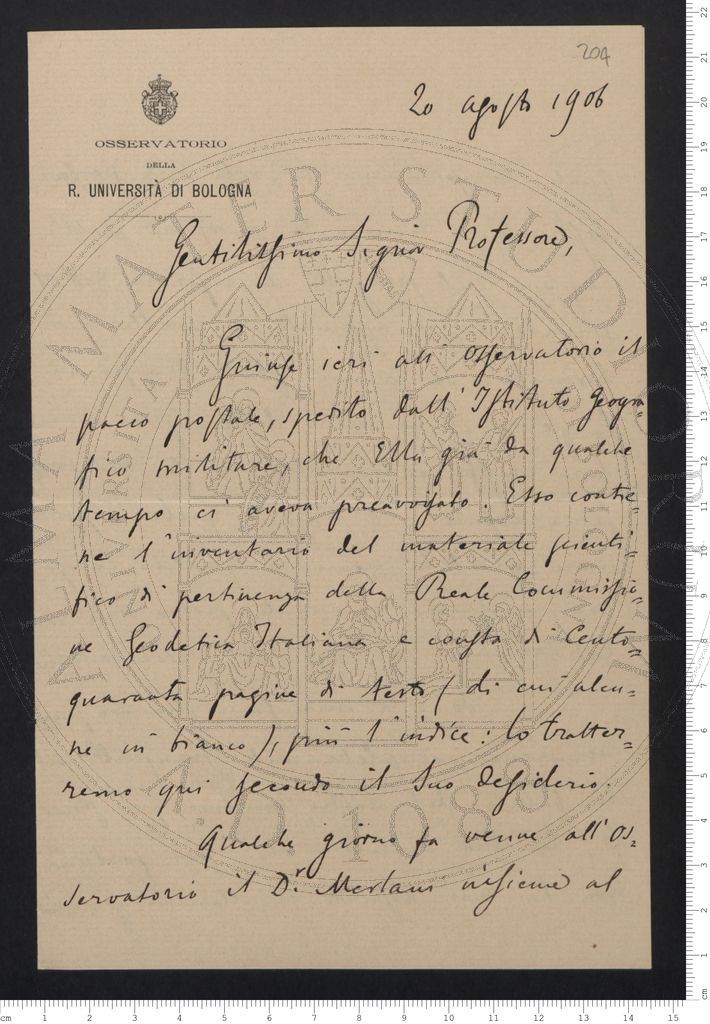 204
20 agosto 1906
OSSERVATORIO
DELLA
R. UNIVERSITÀ DI BOLOGNA
Gentilissimo Signor Professore,
Giunse ieri all' Osservatorio il
pacco postale, spedito dall' Istituto Geogra-
fico militare, che Ella già da qualche
tempo ci aveva preavvisato. Esso contie-
ne l'inventario del materiale scienti-
fico di pertinenza della Reale Commissio-
ne Geodetica Italiana e consta di Cento-
quaranta pagine di testo (di cui alcu-
ne in bianco), più l'indice: lo tratter-
remo qui secondo il Suo desiderio.
Qualche giorno fa venne all' Os-
servatorio il Dr. Merlani insieme al
ALMA MATER STUDIORUM
A.D. 1088
cm 1 2 3 4 5 6 7 8 9 10 11 12 13 14 15
22
21
20
19
18
17
16
15
14
13
12
11
10
9
8
7
6
5
4
3
2
1
cm